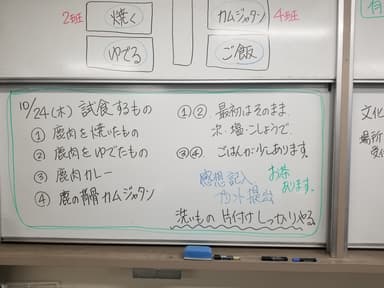 2班
焼く
カムジャタン
4班
ゆでる
ご飯
10/24(木) 試食するもの
① 鹿肉を焼いたもの
② 鹿肉をゆでたもの
③ 鹿肉カレー
④ 鹿の背骨カムジャタン
①② 最初はそのまま
次塩・こしょうで
③④ ごはんが少しあります。
感想記入
提出
お茶
あります。
洗いもの 片付け しっかりやる
文化
場所